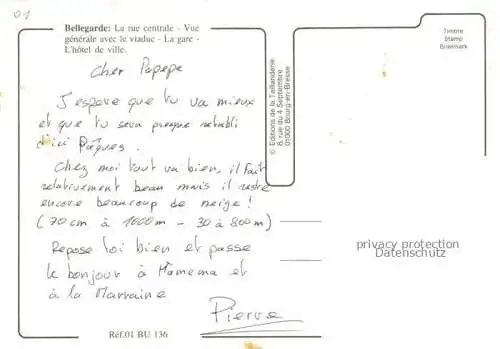 01
Bellegarde: La rue centrale - Vue
générale avec le viaduc - La gare -
L'hôtel de ville.
Cher Papepe
J'espere que tu va mieux
et que tu sera presque retabli
d'ici Pâques.
Chez moi tout va bien, il fait
relativement beau mais il reste
encore beaucoup de neige!
(70 cm à 1000 m - 30 à 800 m)
Repose toi bien et passe
le bonjour à Mamema et
à la Marraine
Pierre
Réf.01 BU 136
© Editions de la Taillanderie
8, rue du 4 Septembre
01000 Bourg-en-Bresse
Timbre
Stamp
Briefmark
privacy protection
Datenschutz